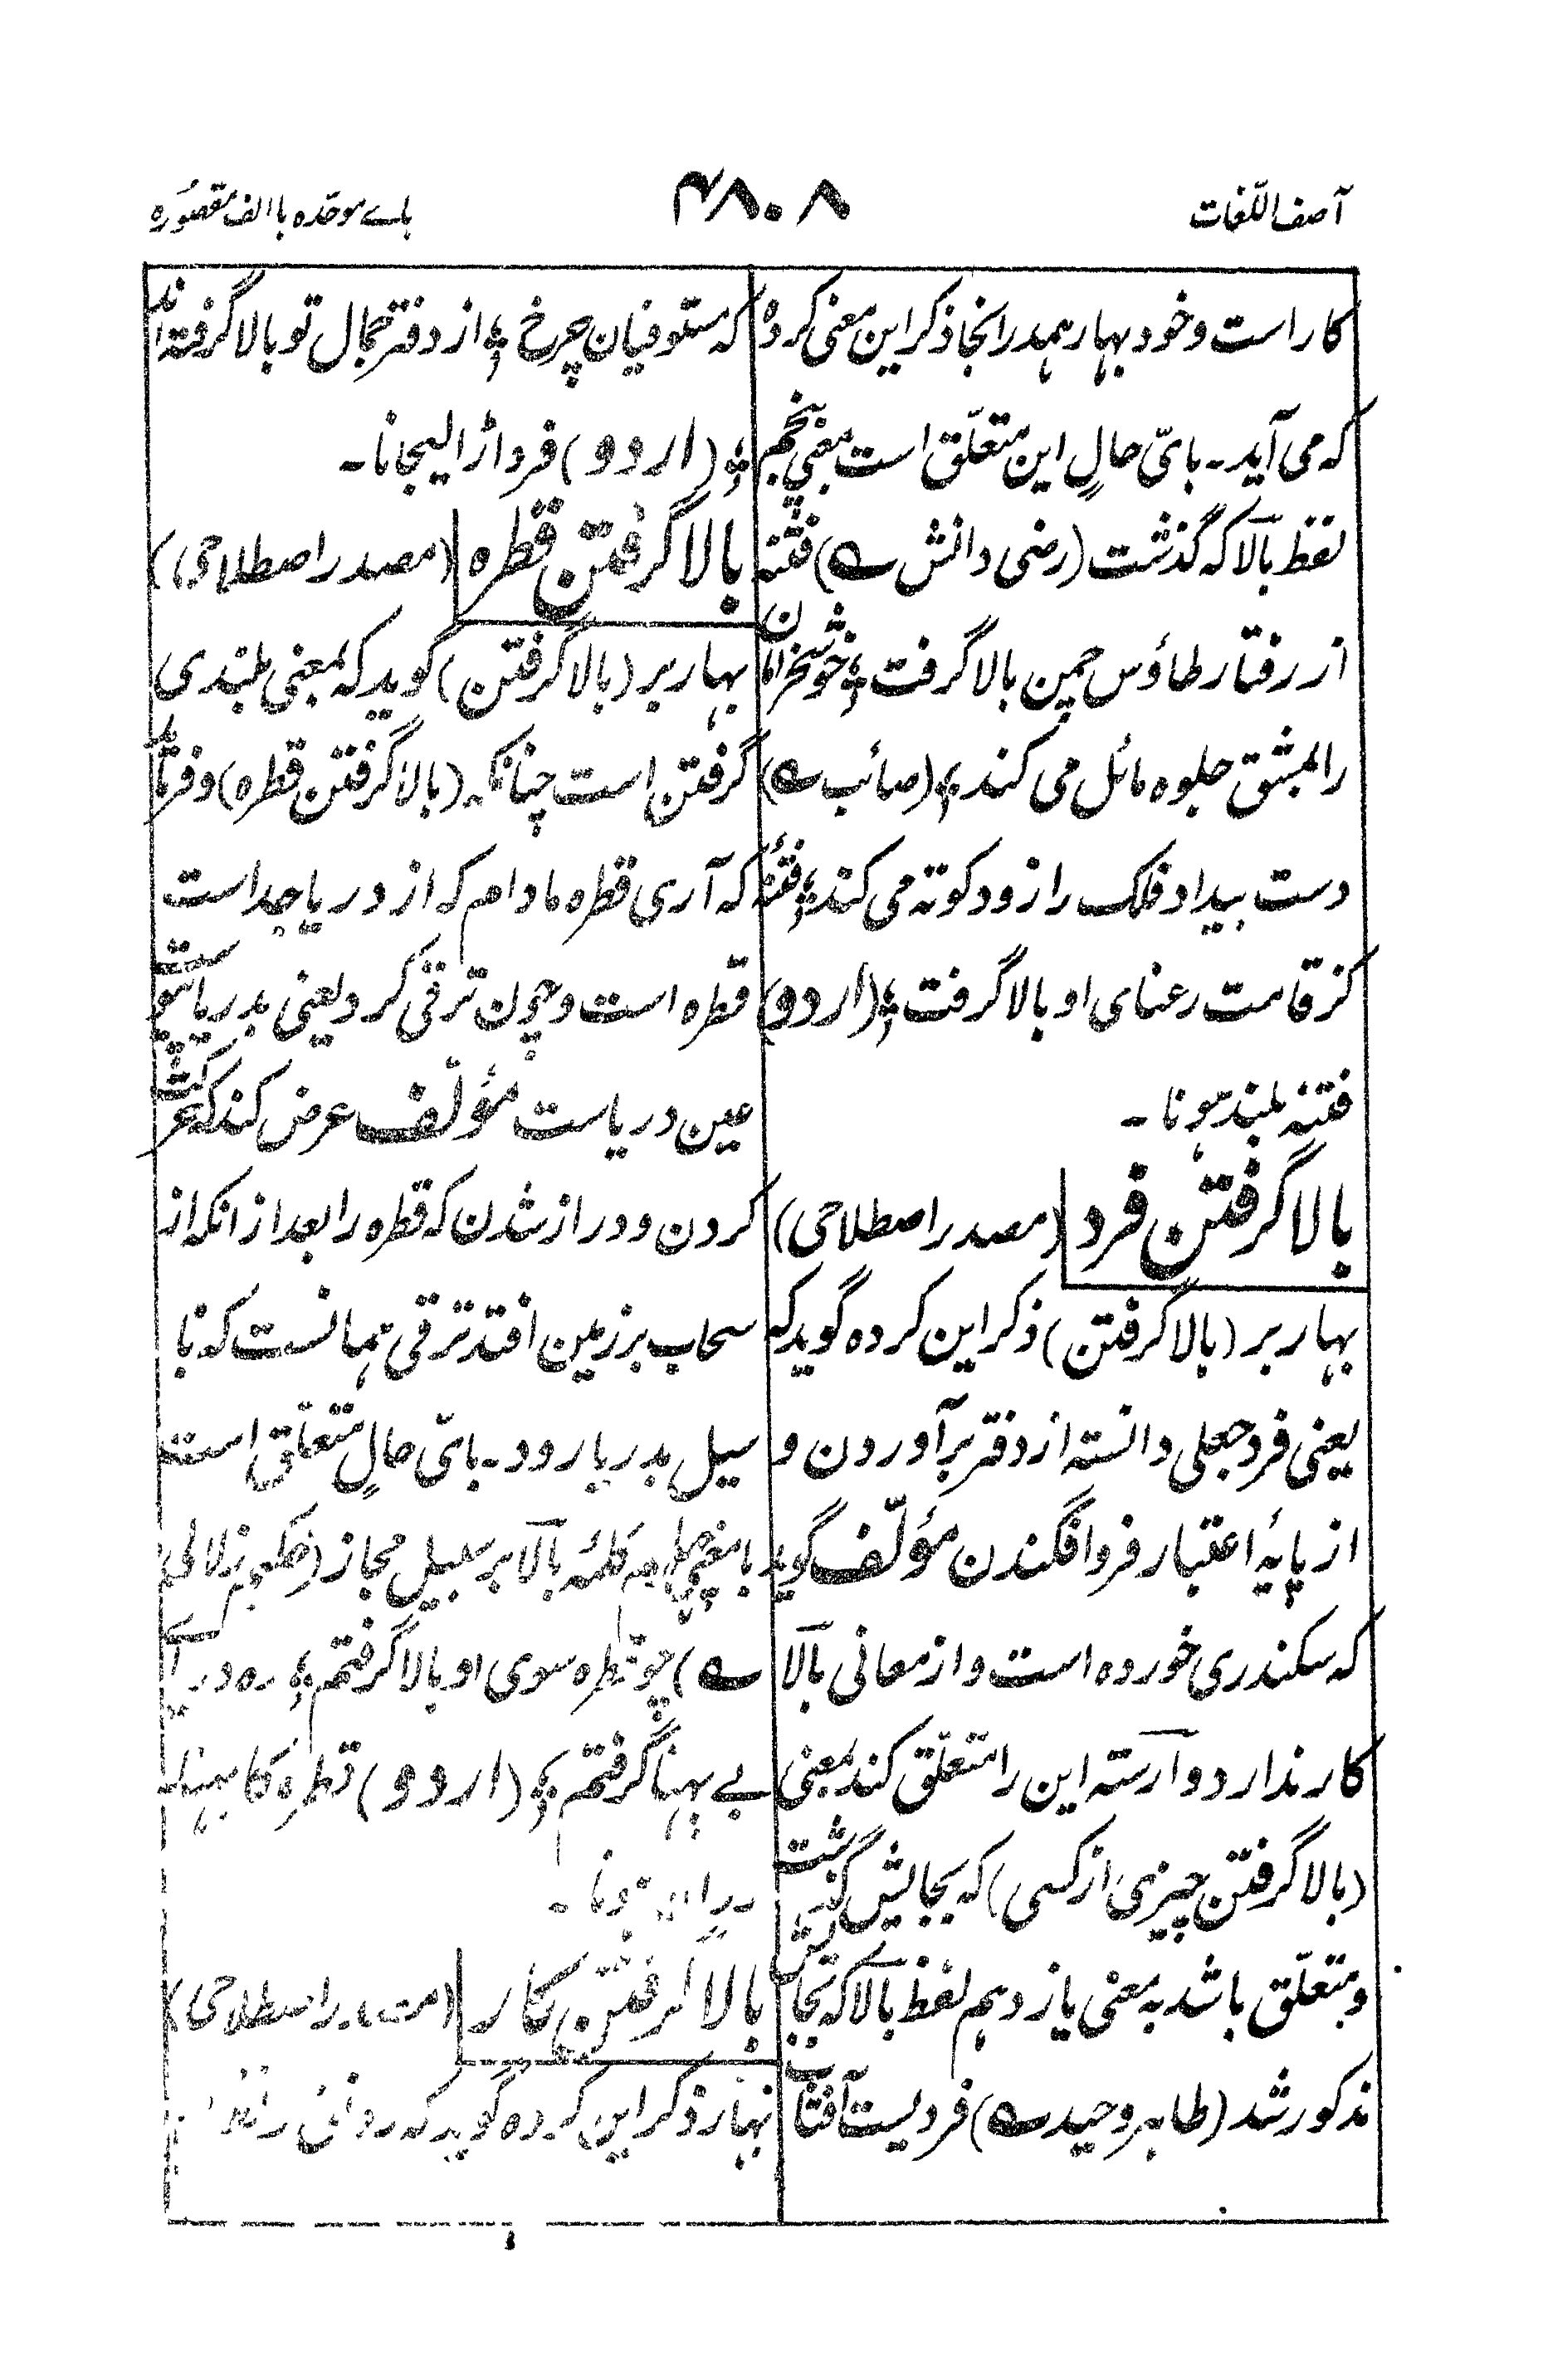 آصف اللّغات
۴۸۰۸
بائے موحّدہ با الف مقصورہ
کار است و خود بہار ہمدرانجا ذکر این معنی کردہ
کہ می آید۔ بایّ حالٍ این متعلّق است بمعنی پنجم
لفظ بالآ کہ گذشت (رضی دانش ے) فتنہ
از رفتار طاؤس چمن بالا گرفت ؛ خوشخرامان
را بمشق جلوہ مائل می کند ؛ (صائب ے)
دست بیداد فلک را زود کوتہ می کند ؛ فتنۂ
کز قامت رعنای او بالا گرفت ؛ (اردو)
فتنہ بلند ہونا۔
بالا گرفتن فرد (مصدر اصطلاحی)
بہار بر (بالا گرفتن) ذکر این کردہ گوید کہ
یعنی فرد جعلی دانستہ از دفتر برآوردن و
از پایۂ اعتبار فروافگندن مؤلّف گوید
کہ سکندری خوردہ است و از معانی بالآ
کار ندارد و آرستہ این را متعلّق کند بمعنی
(بالا گرفتن چیزی از کسی) کہ بجالیش گذشت
و متعلّق باشد بہ معنی یازدہم لفظ بالآ کہ بجایش
مذکور شد (طاہر وحید ے) فردیست آفتاب
کہ مستوفیان چرخ ؛ از دفتر جمال تو بالا گرفتہ اند
؛ (اردو) فرد اڑا لیجانا۔
بالا گرفتن قطرہ (مصدر اصطلاحی)
بہار بر (بالا گرفتن) گوید کہ بمعنی بلندی
گرفتن است چنانکہ (بالا گرفتن قطرہ) و فرماید
کہ آری قطرہ مادام کہ از دریا جداست
قطرہ است و چون ترقی کرد یعنی بدریا پیوست
عین دریاست مؤلّف عرض کند کہ حرکت
کردن و دراز شدن کہ قطرہ را بعد از انکہ از
سحاب بر زمین افتد ترقی ہمانست کہ با
سیل بدریا رود۔ بایّ حالٍ متعلّق است
با معنی کلمۂ بالآ بر سبیل مجاز (حکیم زلالی
ے) چو قطرہ سوی او بالا گرفتم ؛ رہ دریاے
بے پہنا گرفتم ؛ (اردو) قطرہ کا بہنا۔
روان ہونا۔
بالا گرفتن کار (مصدر اصطلاحی)
بہار ذکر این کردہ گوید کہ رونق